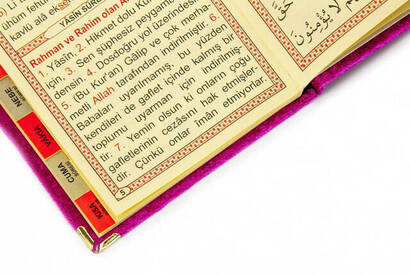 YÂSÎN SÛRE
Rahman ve Rahîm olan A
1. Yâsîn. 2. Hikmet dolu Kur'an
için. 3. Sen şüphesiz peygam
densin. 4. Dosdoğru yol üzerindesin.
5. (Bu Kur'an) Gâlip ve çok merha-
metli Allah tarafından indirilmiştir. 6.
Babaları uyarılmamış, bu yüzden
kendileri de gaflet içinde kalmış bir
toplumu uyarman için indirilmiştir.
7. Yemin olsun ki onların çoğu
gafletlerinin cezâsını hak etmişler-
dir. Çünkü onlar îmân etmiyorlar.
5
NEBE
VAKIA
CUMA
KISA
لَا يُؤْمِنُونَ